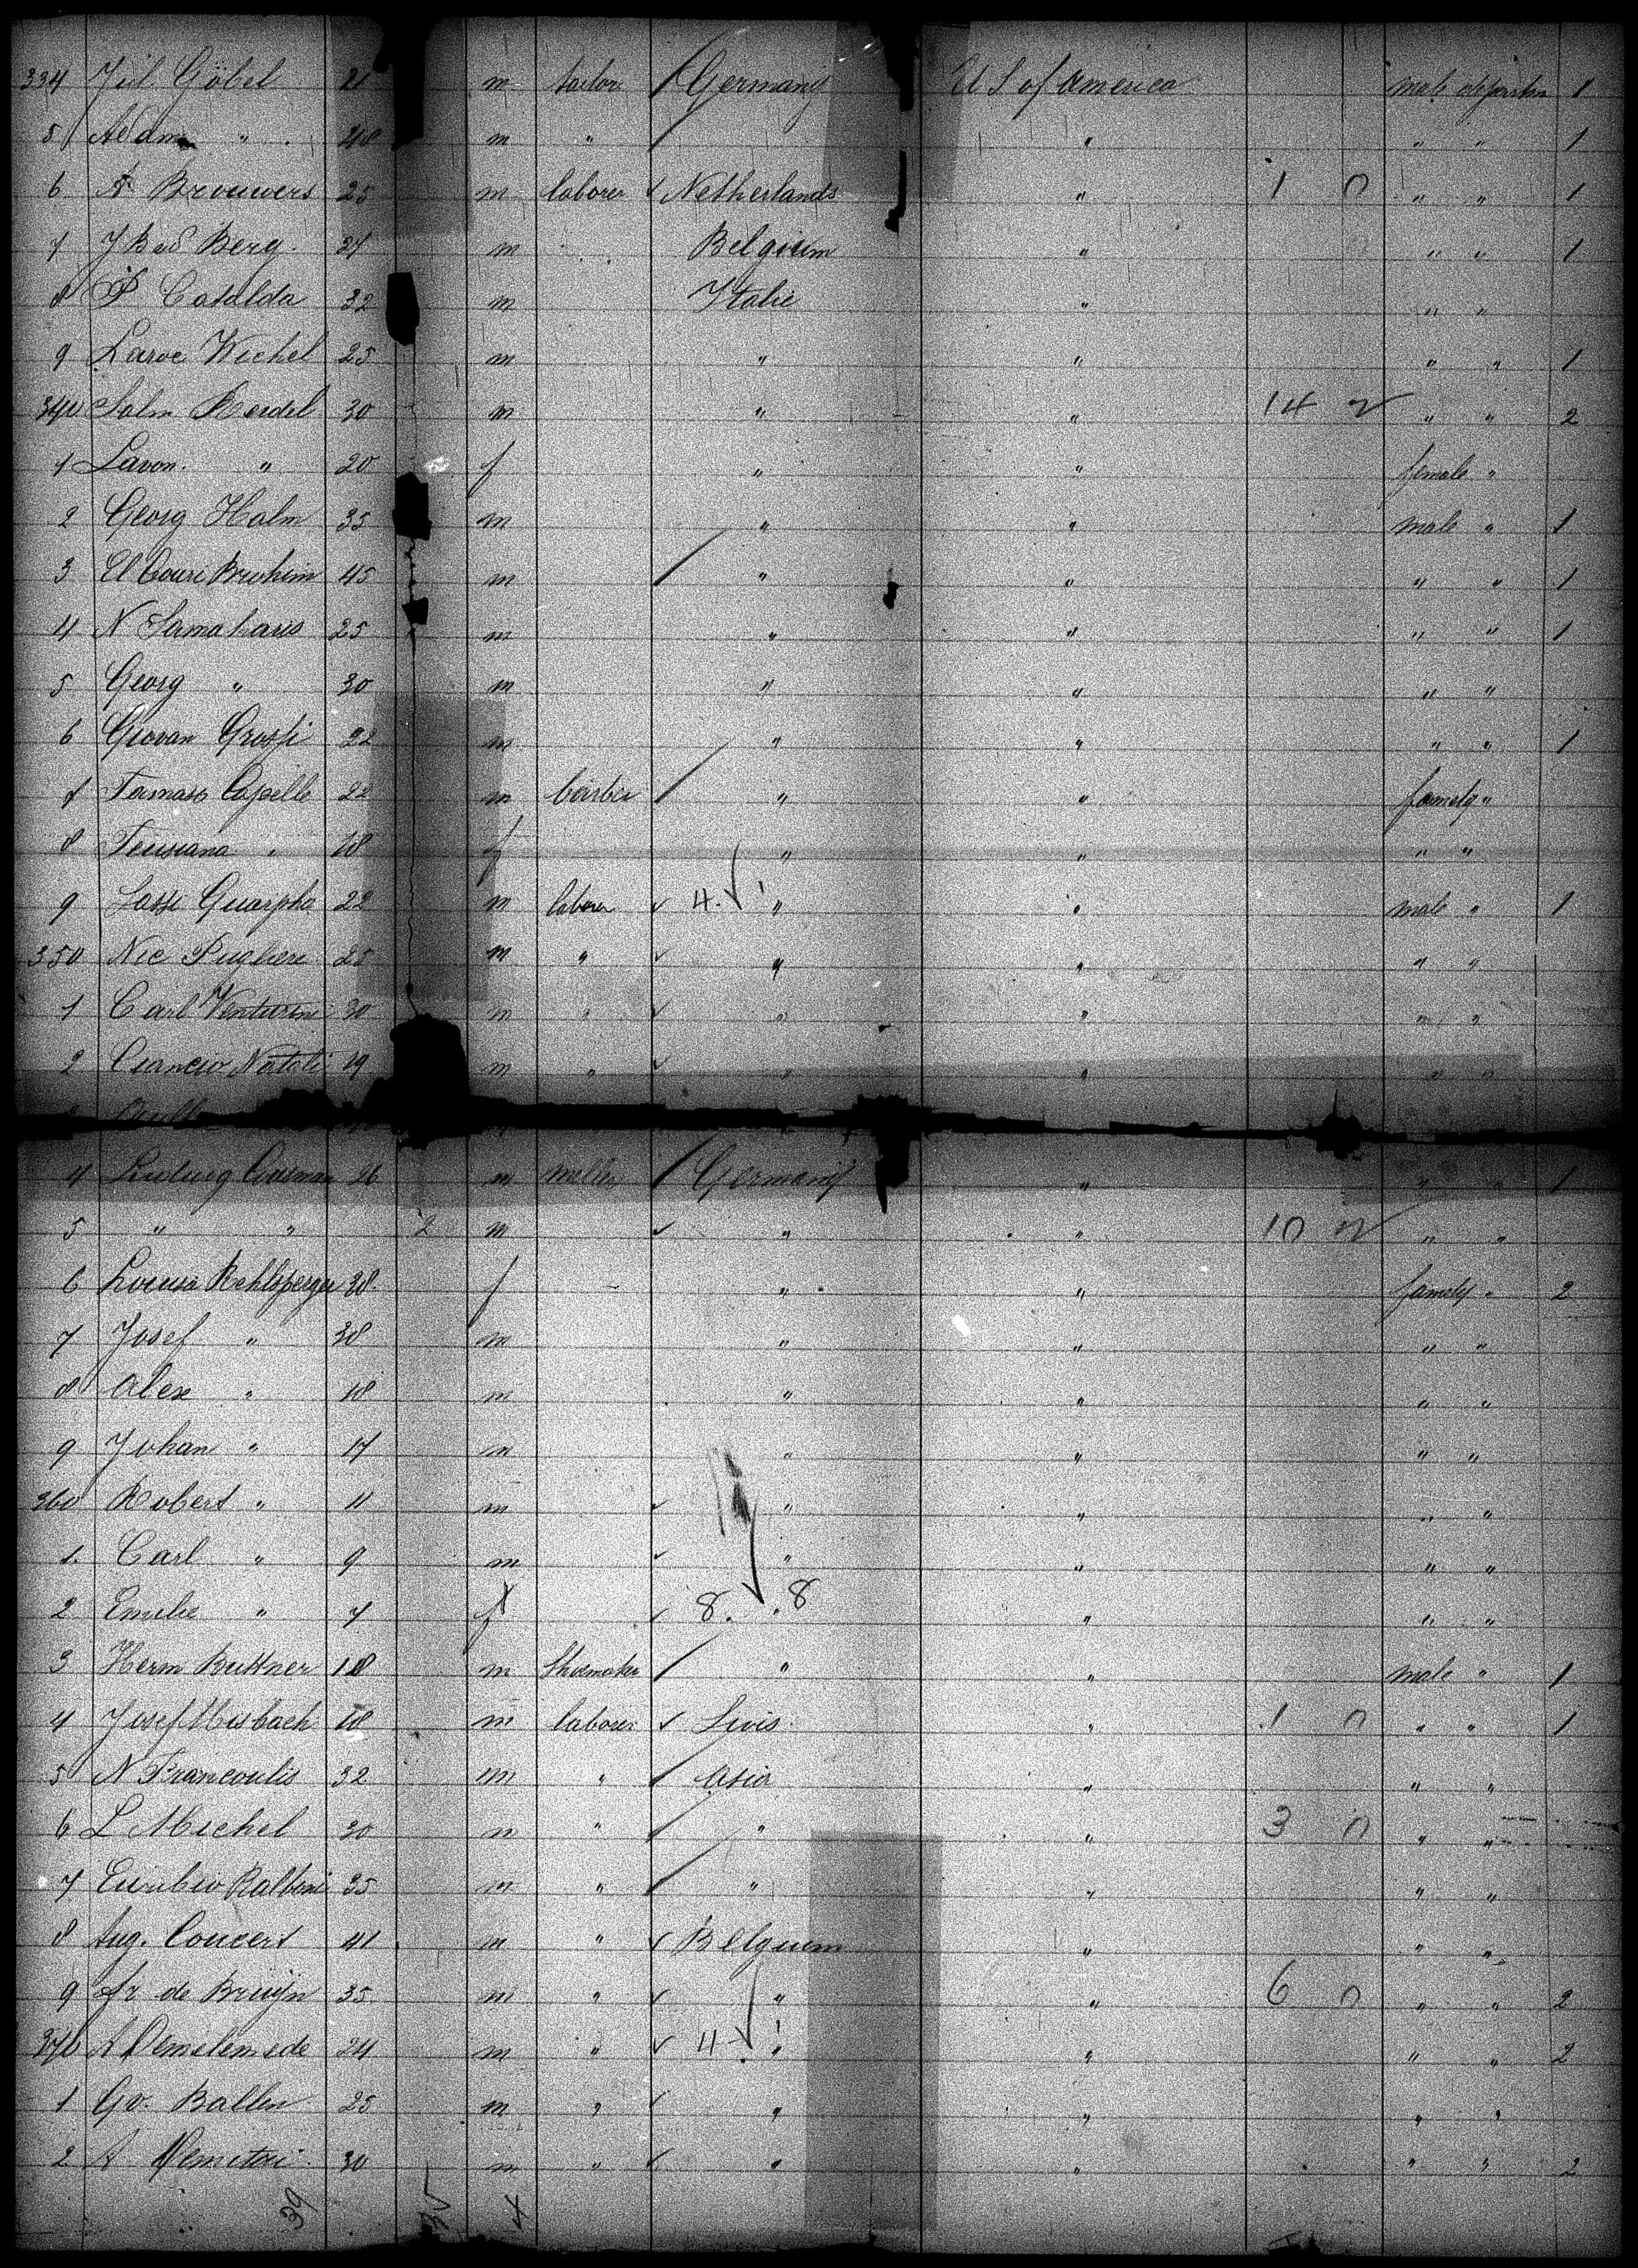 334 Göbel 21 m tailor Germany U S of America male departm 1
5 Adam " 48 m " " " " 1
6 Brouwers 25 m laborer Netherlands " 1 0 " " 1
7 Berg. 27 m Belgium " " " 1
8 P Casalda 32 m Italie " " "
9 Laroe Wichel 25 m " " " " 1
340 Salm Reidel 30 m " " 14 " " 2
1 Lavon. " 20 f " " female "
2 Georg Halm 35 m " " male " 1
3 El Couri Brohim 45 m " " " " 1
4 N Samaharis 25 m " " " " 1
5 Georg " 30 m " " " "
6 Giovan Grossi 22 m " " " " 1
7 Tomaso Capelle 22 m barber " " famely "
8 " 18 f " " " "
9 22 m laborer 4. " " male " 1
350 Nic Pugliere 25 m " " " " "
1 Carl Venturini 30 m " " " " "
2 Ciancio Natali 19 m " " " " "
4 Ludwig 26 m miller Germany " " " 1
5 " " 2 m " " 10 " "
6 Louisa Rehlsperger 38. f " " famely " 2
7 Josef " 38 m " " " "
8 Alex " 18 m " " " "
9 Johan " 17 m " " " "
360 Robert " 11 m " " " "
1. Carl " 9 m " " " "
2 Emilie " 7 f 8. " 8 " " "
3 Herm Buttner 18 m Shoemaker " " male " 1
4 Josef Misbach 18 m laborer Swis. " 1 0 " " 1
5 N Francoulis 32 m " Asia " " "
6 L Michel 30 m " " " 3 0 " "
7 35 m " " " " "
8 Aug. Concert 41 m " Belguem " " "
9 Fr de Bruijn 35 m " " " 6 0 " " 2
370 24 m " 4 " " " " 2
1 Gv. Ballen 25 m " " " " "
2 A Demetri 30 m " " " " " 2
39 4